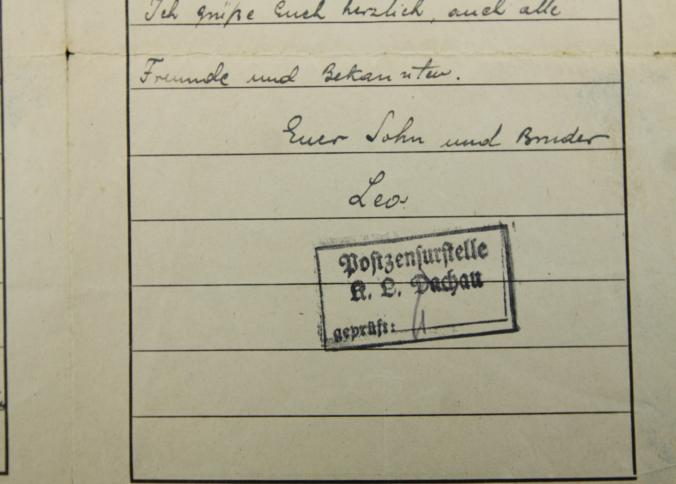 Ich grüße Euch herzlich, auch alle
Freunde und Bekannten.
Euer Sohn und Bruder
Leo.
Postzensurstelle
K. L. Dachau
geprüft: